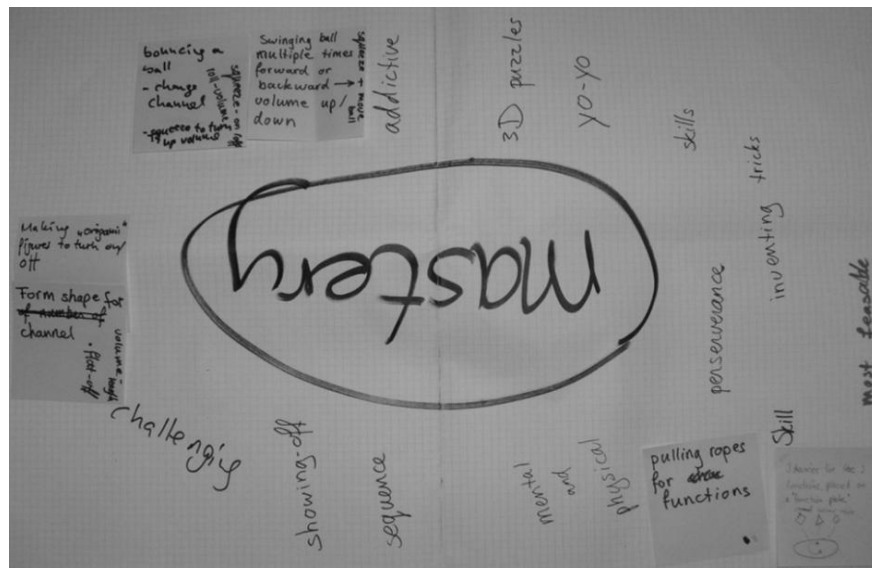 bouncing a
ball
- change
channel
- squeeze to turn
up volume
squeeze - on/off
roll - volume
Swinging ball
multiple times
forward or
backward →
volume up/
down
squeeze + move
ball
addictive
3D puzzles
yo-yo
skills
inventing tricks
perserverance
most feasable
mastery
Making "origami"
figures to turn on/
off
Form shape for
channel
volume
flat-off
challenging
showing-off
sequence
mental
and
physical
Skill
pulling ropes
for
functions